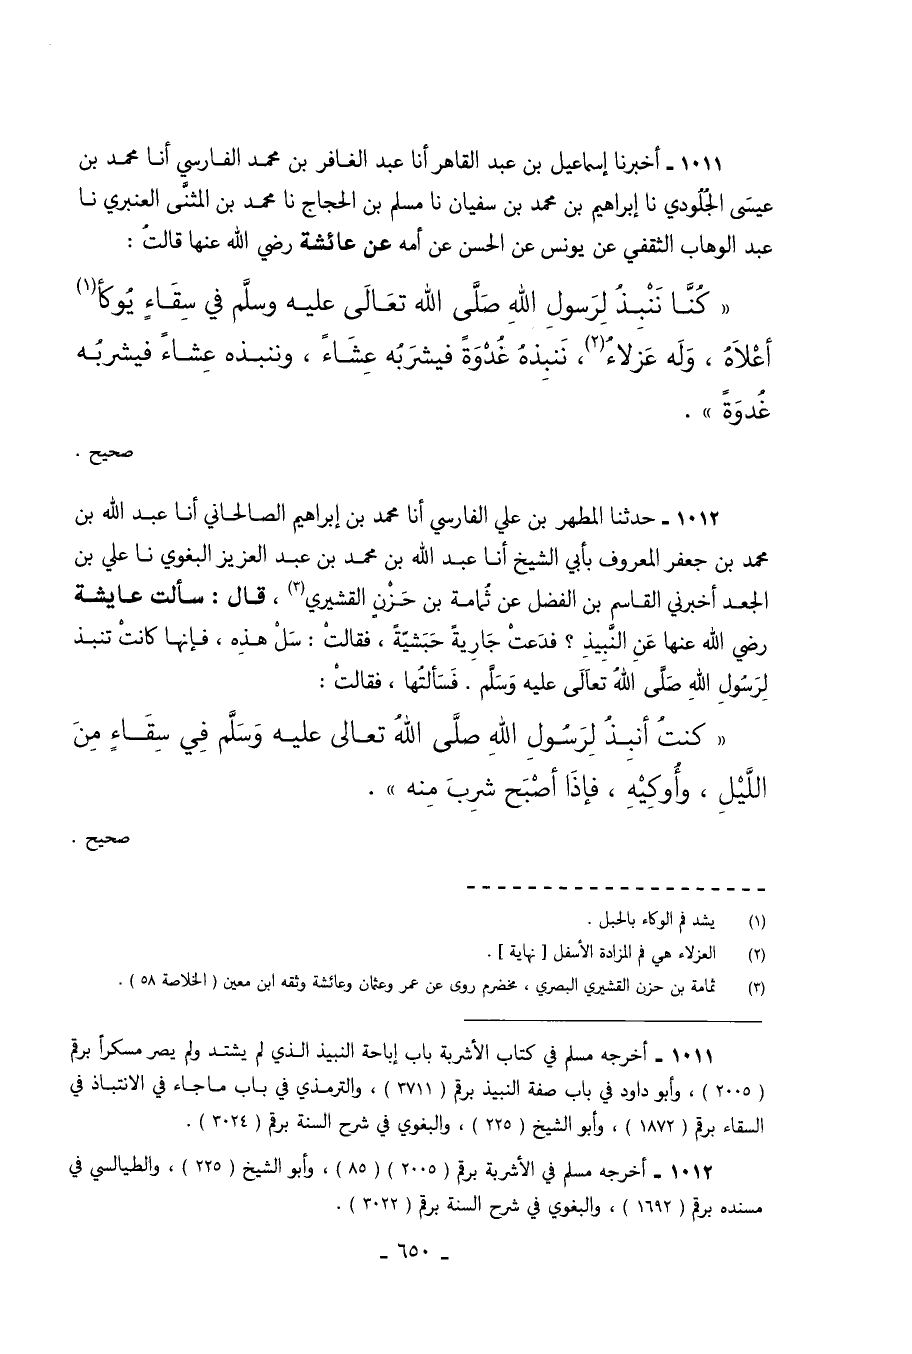 ١٠١١ ـ أخبرنا إسماعيل بن عبد القاهر أنا عبد الغافر بن محمد الفارسي أنا محمد بن
عيسَى الجُلُودي نا إبراهيم بن محمد بن سفيان نا مسلم بن الحجاج نا محمد بن المثنَّى العنبري نا
عبد الوهاب الثقفي عن يونس عن الحسن عن أمه عن عائشة رضي الله عنها قالتْ :
« كُنَّا نَنْبِذُ لِرَسولِ اللهِ صَلَّى الله تعَالَى عليه وسلَّم في سِقَاءٍ يُوكأ(١)
أعْلَاهُ ، وَله عَزلاءُ(٢)، نَنبِذهُ غُدْوَةً فيشرَبُه عِشَاءً ، وننبذه عِشاءً فيشربُه
غُدوَةً » .
صحيح .
١٠١٢ ـ حدثنا المطهر بن علي الفارسي أنا محمد بن إبراهيم الصالحاني أنا عبد الله بن
محمد بن جعفر المعروف بأبي الشيخ أنا عبد الله بن محمد بن عبد العزيز البغوي نا علي بن
الجعد أخبرني القاسم بن الفضل عن ثُمامة بن حَزْنٍ القشيري(٣) ، قال : سألت عايشة
رضي الله عنها عَنِ النَّبيذِ ؟ فدَعتْ جَاريةً حَبَشيّةً ، فقالتْ : سَلْ هذه ، فإنها كانتْ تنبذ
لِرَسُولِ اللهِ صَلَّى اللهُ تعاَلَى عليه وَسَلَّم . فَسَألتُها ، فقالتْ :
« كنتُ أنبِذُ لِرَسُولِ اللهِ صلَّى اللهُ تعالى عليه وَسَلَّم فِي سِقَاءٍ مِنَ
اللَّيْلِ ، وأُوكِيْهِ ، فإذَا أصْبَح شرِبَ مِنه » .
صحيح .
(١) يشد فم الوكاء بالحبل .
(٢) العزلاء هي فم المزادة الأسفل [ نهاية ] .
(٣) ثمامة بن حزن القشيري البصري ، مخضرم روى عن عمر وعثمان وعائشة وثقه ابن معين ( الخلاصة ٥٨ ) .
١٠١١ ـ أخرجه مسلم في كتاب الأشربة باب إباحة النبيذ الذي لم يشتد ولم يصر مسكراً برقم
( ٢٠٠٥ ) ، وأبو داود في باب صفة النبيذ برقم ( ٣٧١١ ) ، والترمذي في باب ماجاء في الانتباذ في
السقاء برقم ( ١٨٧٢ ) ، وأبو الشيخ ( ٢٢٥ ) ، والبغوي في شرح السنة برقم ( ٣٠٢٤ ) .
١٠١٢ ـ أخرجه مسلم في الأشربة برقم ( ٢٠٠٥ ) ( ٨٥ ) ، وأبو الشيخ ( ٢٢٥ ) ، والطيالسي في
مسنده برقم ( ١٦٩٢ ) ، والبغوي في شرح السنة برقم ( ٣٠٢٢ ) .
ـ ٦٥٠ ـ